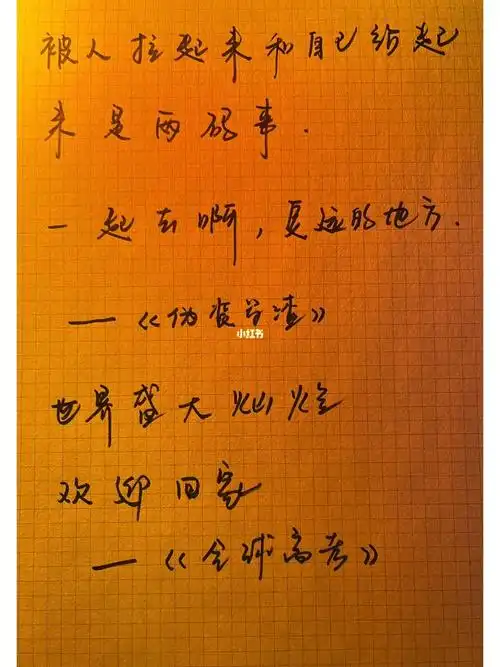 被人拉起来和自己站起
来是两码事.
一起去啊,更远的地方.
——《伪装学渣》
小红书
世界盛大灿烂
欢迎回家
——《全球高考》